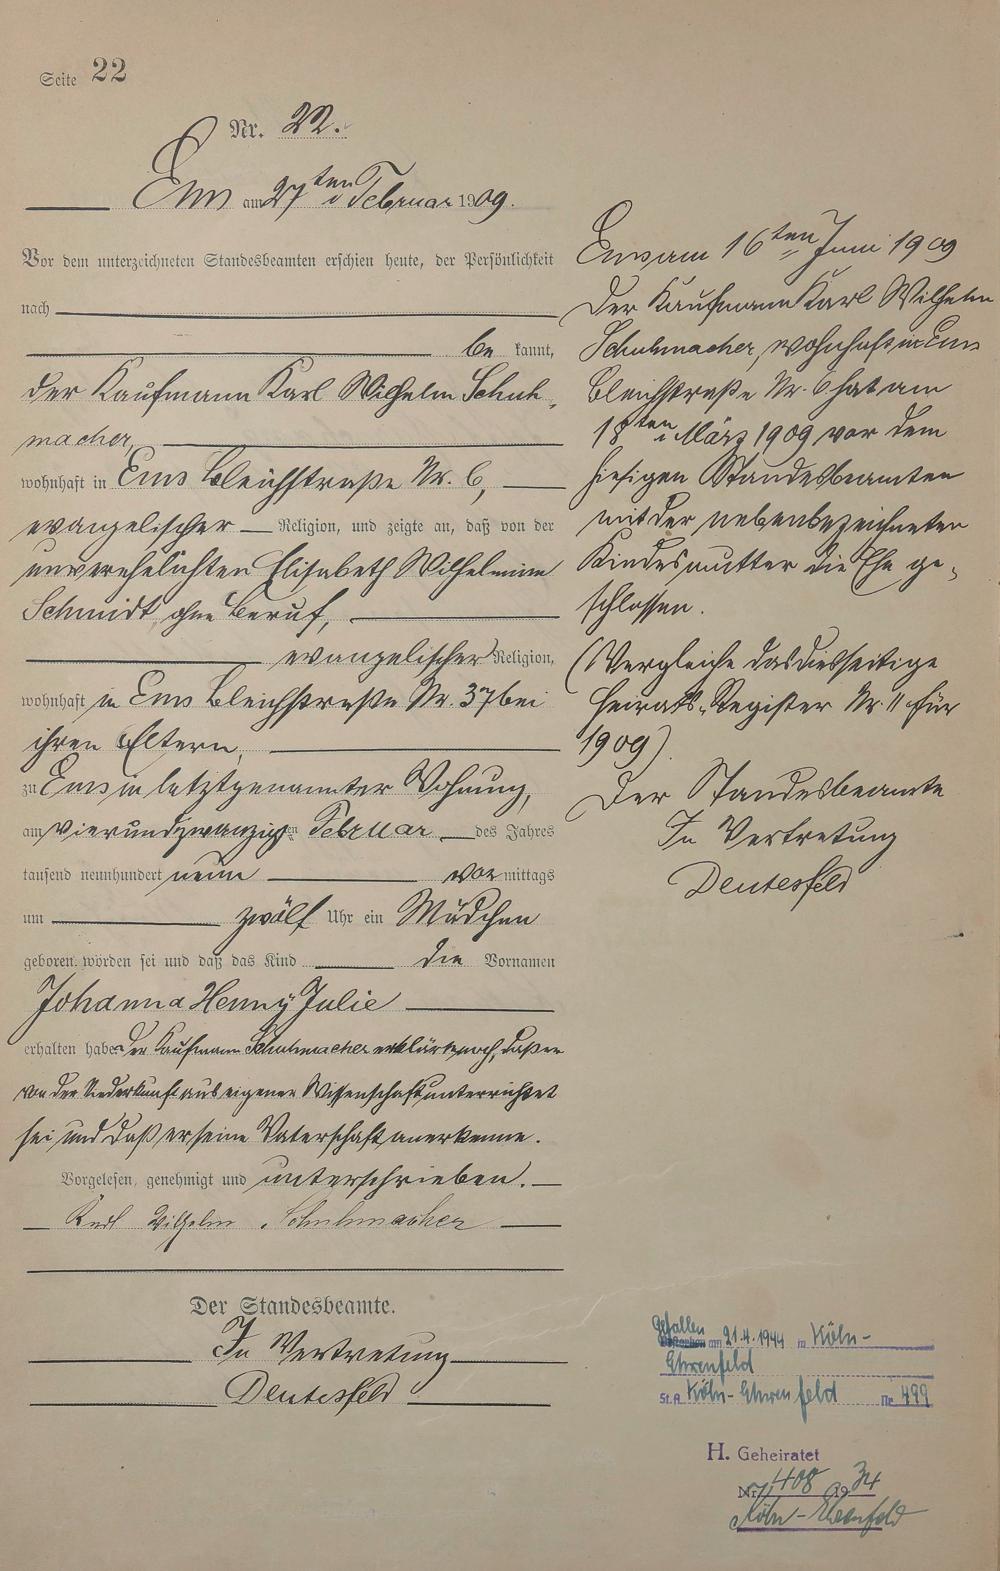 Seite 22
Nr. 22.
Ems am 27ten Februar 1909.
Vor dem unterzeichneten Standesbeamten erschien heute, der Persönlichkeit
nach
be kannt,
der Kaufmann Karl Wilhelm Schuh-
macher,
wohnhaft in Ems Bleichstraße Nr. 6,
evangelischer Religion, und zeigte an, daß von der
unverehelichten Elisabeth Wilhelmine
Schmidt ohne Beruf,
evangelischer Religion,
wohnhaft in Ems Bleichstraße Nr. 37 bei
ihren Eltern,
zu Ems in letztgenannter Wohnung,
am vierundzwanzigsten Februar des Jahres
tausend neunhundert neun vormittags
um zwölf Uhr ein Mädchen
geboren worden sei und daß das Kind die Vornamen
Johanna Henny Julie
erhalten habe. Der Kaufmann Schuhmacher erklärte noch, daß er
von der Niederkunft aus eigener Wissenschaft unterrichtet
sei und daß er seine Vaterschaft anerkenne.
Vorgelesen, genehmigt und unterschrieben.
Karl Wilhelm Schuhmacher
Der Standesbeamte.
In Vertretung
Deutesfeld
Ems am 16ten Juni 1909
Der Kaufmann Karl Wilhelm
Schuhmacher, wohnhaft in Ems
Bleichstraße Nr. 6 hat am
18ten März 1909 vor dem
hiesigen Standesbeamten
mit der nebenbezeichneten
Kindesmutter die Ehe ge-
schlossen.
(Vergleiche das diesseitige
Heirats-Register Nr. 11 für
1909)
Der Standesbeamte
In Vertretung
Deutesfeld
Gefallen
am 21.4.1944 in Köln-
Ehrenfeld
St.A. Köln-Ehrenfeld Nr. 499
H. Geheiratet
Nr. 408 1934
Köln-Ehrenfeld